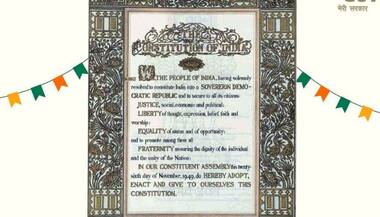 मेरी सरकार
THE
CONSTITUTION OF INDIA
WE, THE PEOPLE OF INDIA, having solemnly
resolved to constitute India into a SOVEREIGN DEMO-
CRATIC REPUBLIC and to secure to all its citizens:
JUSTICE, social, economic and political;
LIBERTY of thought, expression, belief, faith and
worship;
EQUALITY of status and of opportunity;
and to promote among them all
FRATERNITY assuring the dignity of the individual
and the unity of the Nation;
IN OUR CONSTITUENT ASSEMBLY this twenty-
sixth day of November, 1949, do HEREBY ADOPT,
ENACT AND GIVE TO OURSELVES THIS
CONSTITUTION.